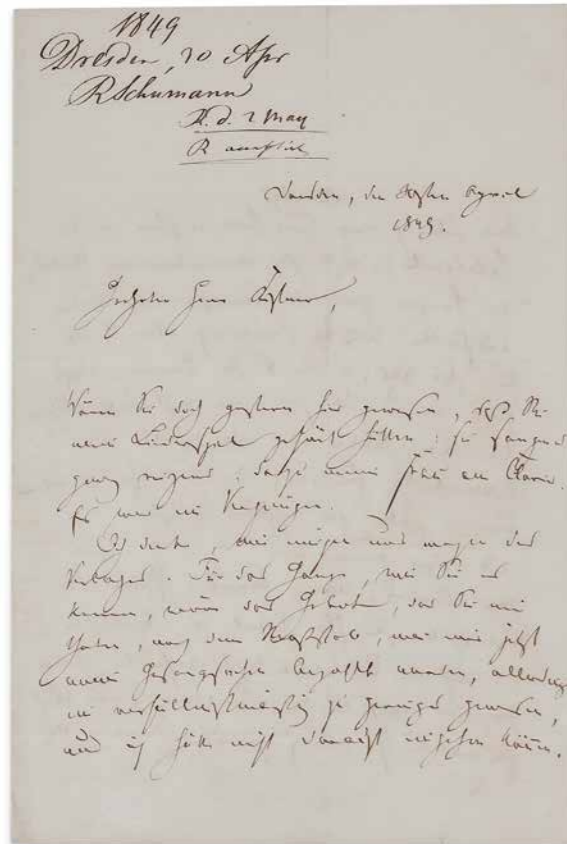 1849
Dresden, 30 Apr
RSchumann
R. d. 2 May
Dresden, den 30sten April
1849.
Geehrter Herr Kistner,
Wären Sie doch gestern hier gewesen, daß Sie
mein gehört hätten; sie sangen's
ganz reizend; dazu meine Frau am Clavier.
Es war ein Vergnügen.
Ich denke, wir einigen uns wegen des
Verlages. Für das Ganze, wie Sie es
kennen, wäre das Gebot, das Sie mir
thaten, nach dem Maaßstab, wie mir jetzt
meine Gesangsachen bezahlt werden, allerdings
ein verhältnißmäßig zu geringes gewesen,
und ich hätte nicht darauf eingehen können.